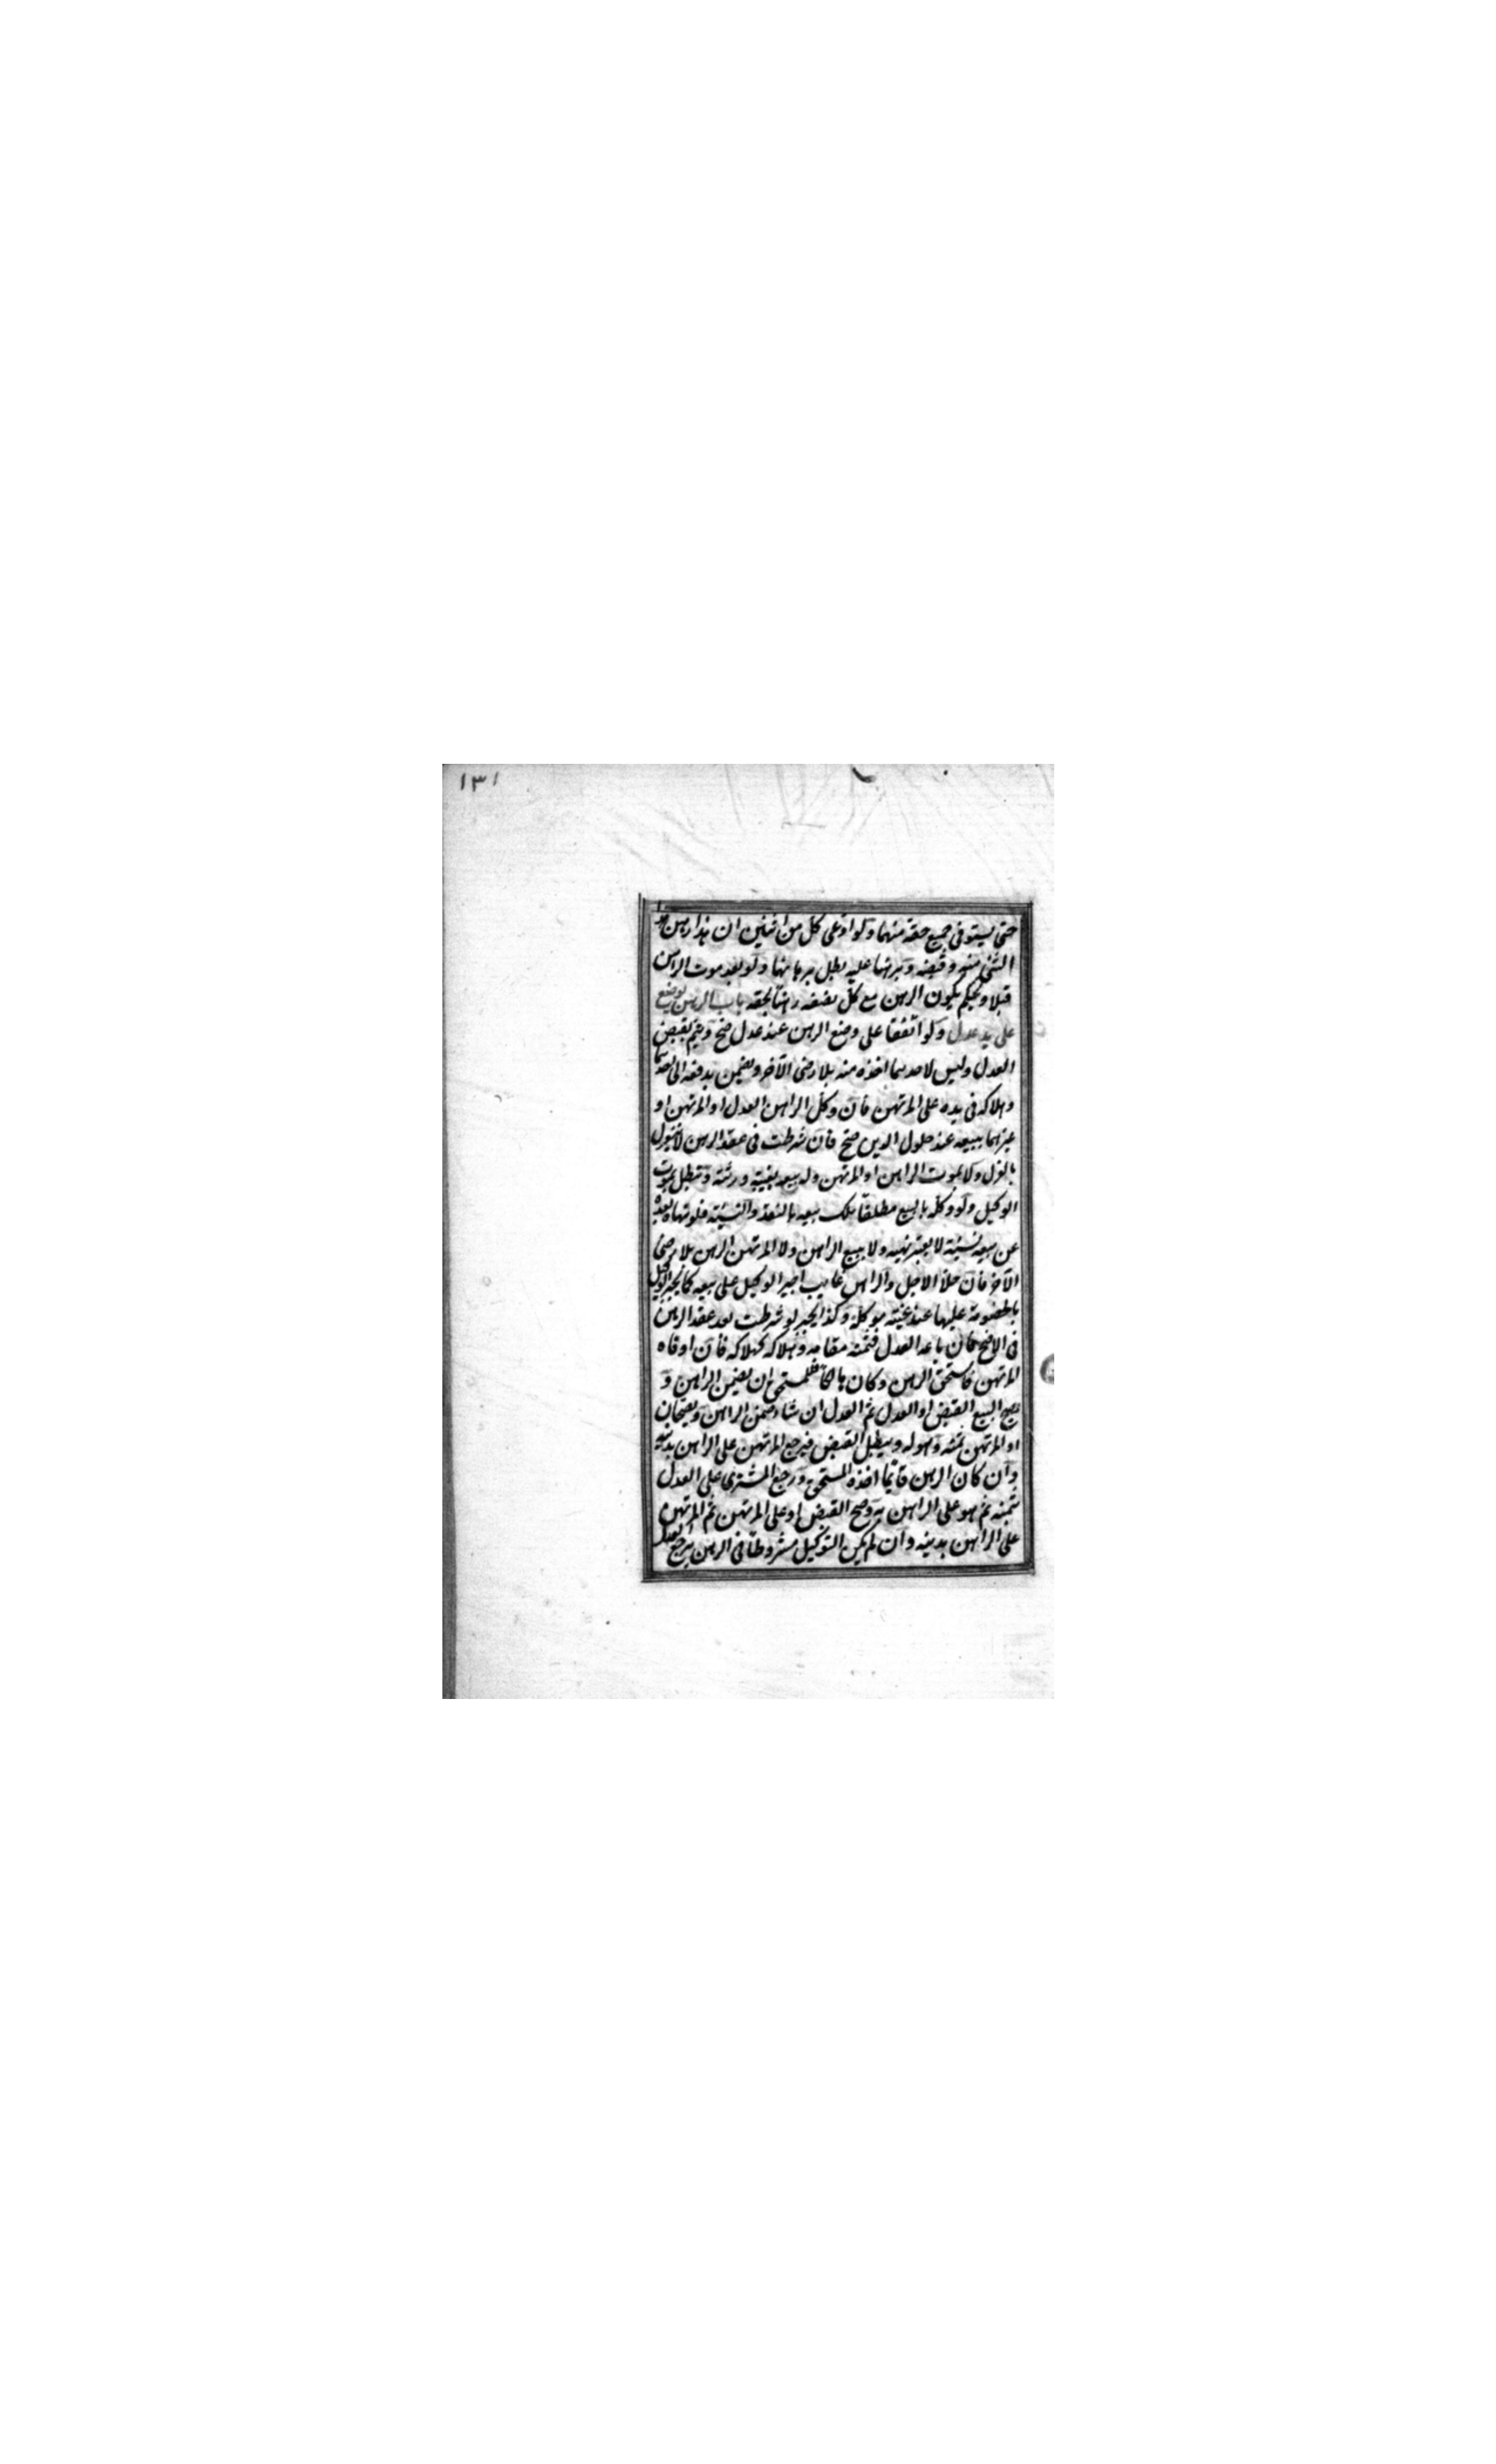 ١٣١
حتى يستوفى جميع حقه منهما ولو ادعى كل من اثنين ان هذا رهن هذا
الشئ منه وقبضه وبرهنا عليه بطل برهانهما ولو بعد موت الراهن
قبلا ويحكم بكون الرهن مع كل نصفه رهنا بحقه باب الرهن يوضع
على يد عدل ولو اتفقا على وضع الرهن عند عدل صح ويتم بقبض
العدل وليس لاحدهما اخذه منه بلا رضى الآخر ويضمن بدفعه الى احدهما
وهلاكه فى يده على المرتهن فان وكل الراهن العدل او المرتهن او
غيرهما ببيعه عند حلول الدين صح فان شرطت فى عقد الرهن لا ينعزل
بالعزل ولا بموت الراهن او المرتهن وله بيعه بغيبة ورثته وتبطل بموت
الوكيل ولو وكله بالبيع مطلقا ملك بيعه بالنقد والنسيئة فلو نهاه بعده
عن بيعه نسيئة لا يعتبر نهيه ولا يبيع الراهن ولا المرتهن الرهن بلا رضى
الآخر فان حل الاجل والراهن غايب اجبر الوكيل على بيعه كما يجبر الوكيل
بالخصومة عليها عند غيبة موكله وكذا يجبر لو شرطت بعد عقد الرهن
فى الاصح فان باعه العدل فثمنه مقامه وهلاكه كهلاكه فان اوفاه
المرتهن فاستحق الرهن وكان هالكا فللمستحق ان يضمن الراهن و
يصح البيع القبض او العدل ثم العدل ان شاء ضمن الراهن ويصحان
او المرتهن ثمنه وهو له ويبطل القبض فيرجع المرتهن على الراهن بدينه
وان كان الرهن قائما اخذه المستحق ورجع المشترى على العدل
بثمنه ثم هو على الراهن به وصح القبض او على المرتهن ثم المرتهن
على الراهن بدينه وان لم يكن التوكيل مشروطا فى الرهن يرجع العدل